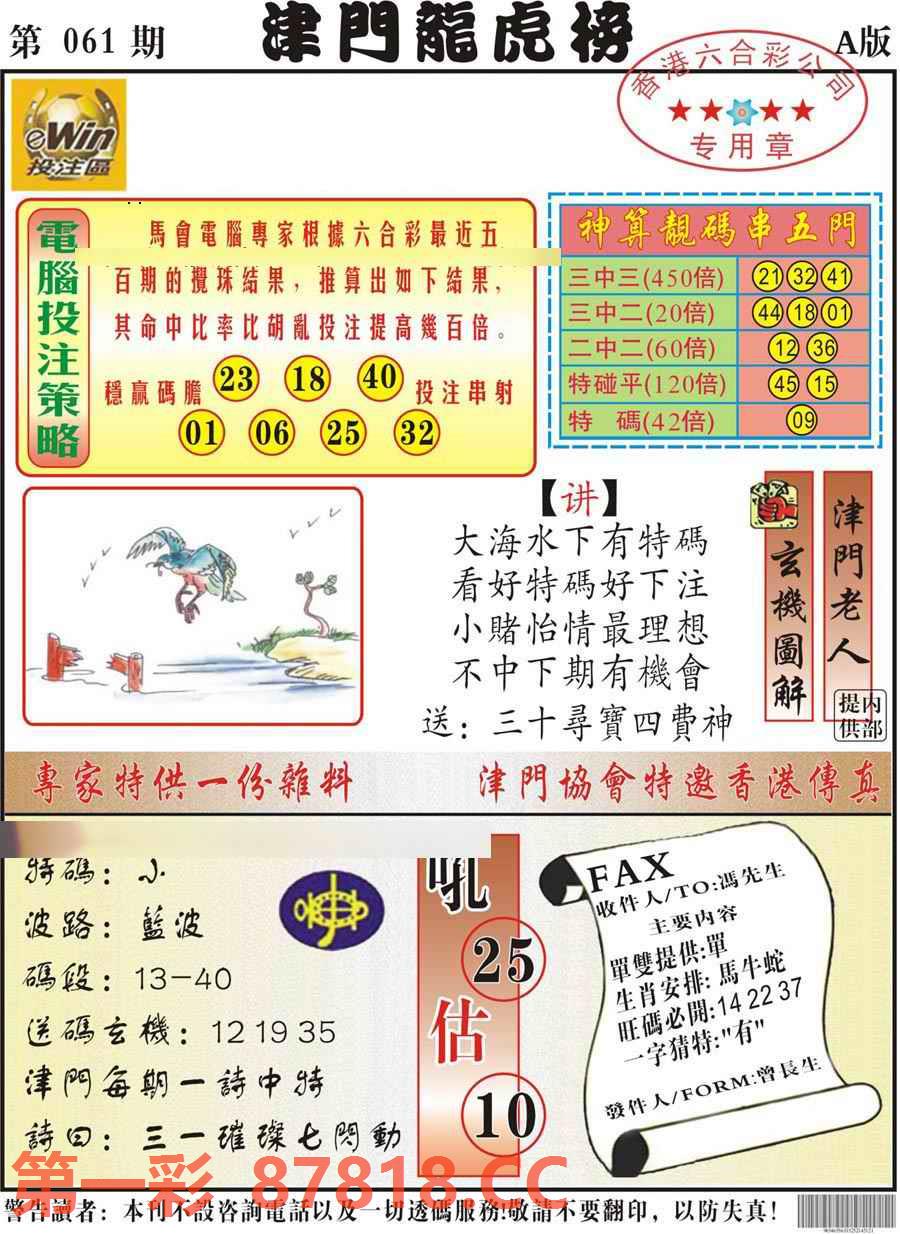 第 061 期
津門龍虎榜
A版
香港六合彩公司
专用章
eWin
投注區
電腦投注策略
馬會電腦專家根據六合彩最近五
百期的攪珠結果，推算出如下結果，
其命中比率比胡亂投注提高幾百倍。
穩贏碼膽 23 18 40 投注串射
01 06 25 32
神算靚碼串五門
三中三(450倍) 21 32 41
三中二(20倍) 44 18 01
二中二(60倍) 12 36
特碰平(120倍) 45 15
特 碼(42倍) 09
【讲】
大海水下有特碼
看好特碼好下注
小賭怡情最理想
不中下期有機會
送：三十尋寶四費神
玄機圖解
津門老人
內部提供
專家特供一份雜料
津門協會特邀香港傳真
特碼：小
波路：藍波
碼段：13-40
送碼玄機：12 19 35
津門每期一詩中特
詩曰：三一璀璨七閃動
吼
25
估
10
FAX
收件人/TO:馮先生
主要內容
單雙提供:單
生肖安排:馬牛蛇
旺碼必開:14 22 37
一字猜特:"有"
發件人/FORM:曾長生
第一彩 87818.CC
警告讀者：本刊不設咨詢電話以及一切透碼服務!敬請不要翻印，以防失真!